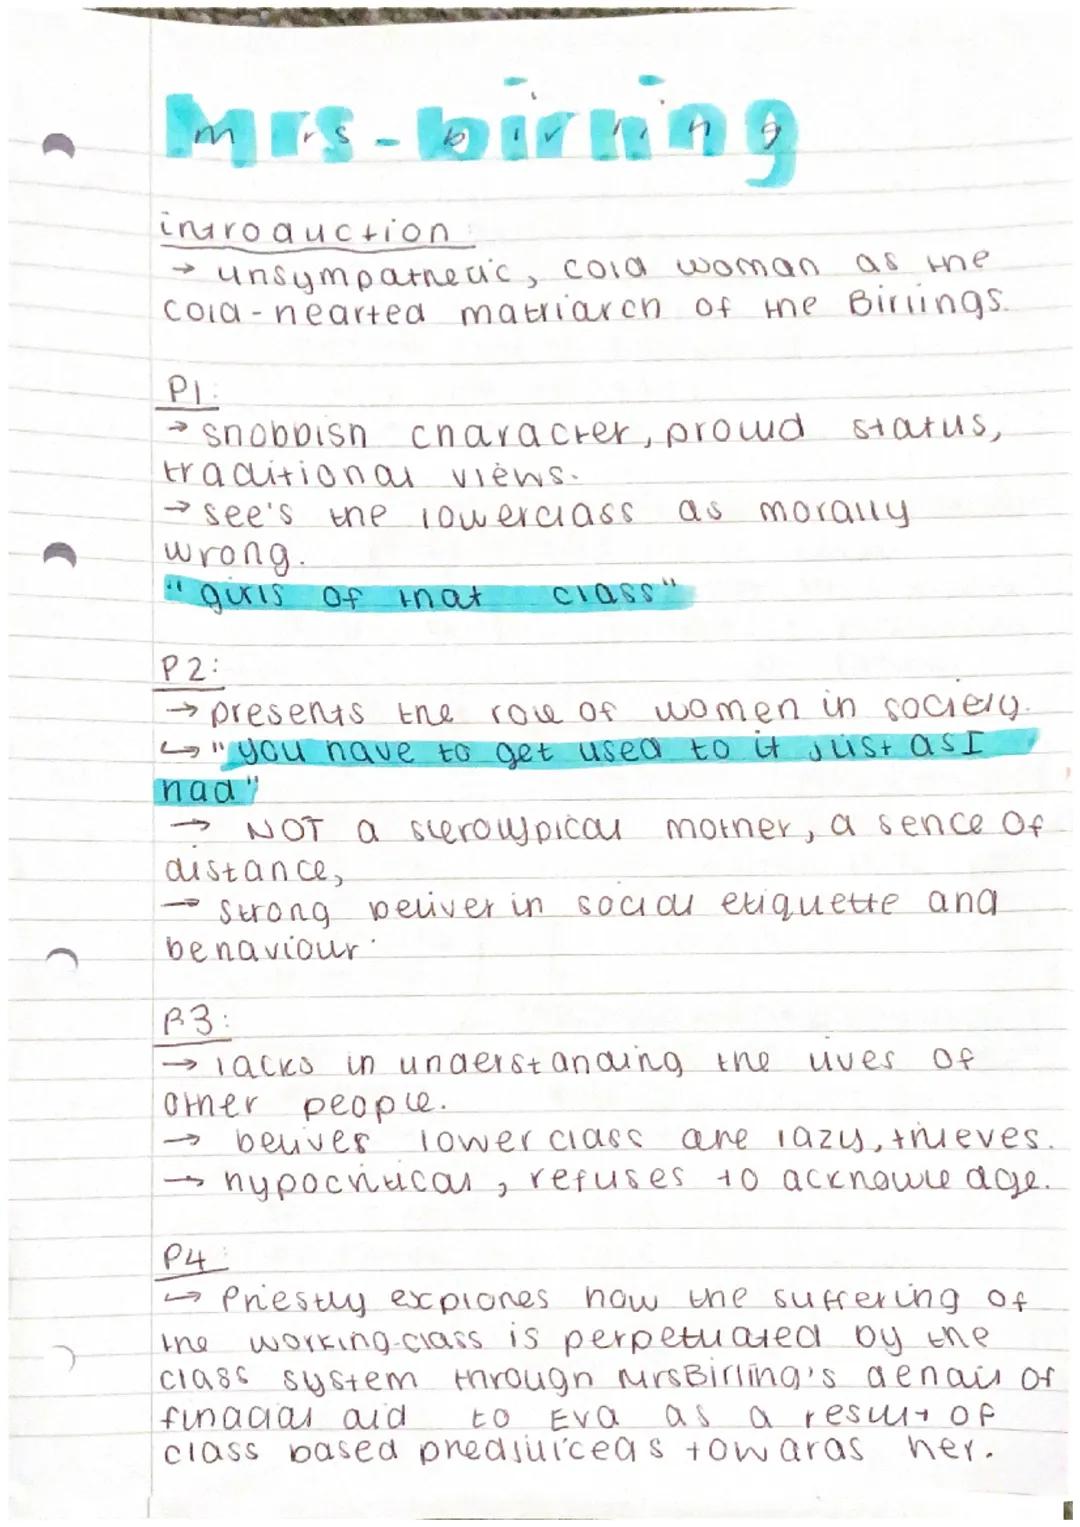 Mrs-birling
introduction:
→ unsympathetic, cold woman as the
cold-hearted matriarch of the Birlings.
P1:
→ snobbish character, proud status,
traditional views.
→ see's the lowerclass as morally
wrong.
"girls of that class"
P2:
→ presents the role of women in society.
↳ "you have to get used to it just as I
had"
→ NOT a sterotypical mother, a sence of
distance,
→ strong beliver in social etiquette and
behaviour.
P3:
→ lacks in understanding the lives of
other people.
→ belives lower class are lazy, thieves.
→ hypocritical, refuses to acknowledge.
P4:
↳ Priestly explores how the suffering of
the working-class is perpetuated by the
class system through Mrs Birling's denail of
finacial aid to Eva as a result of
class based predjuiceds towards her.